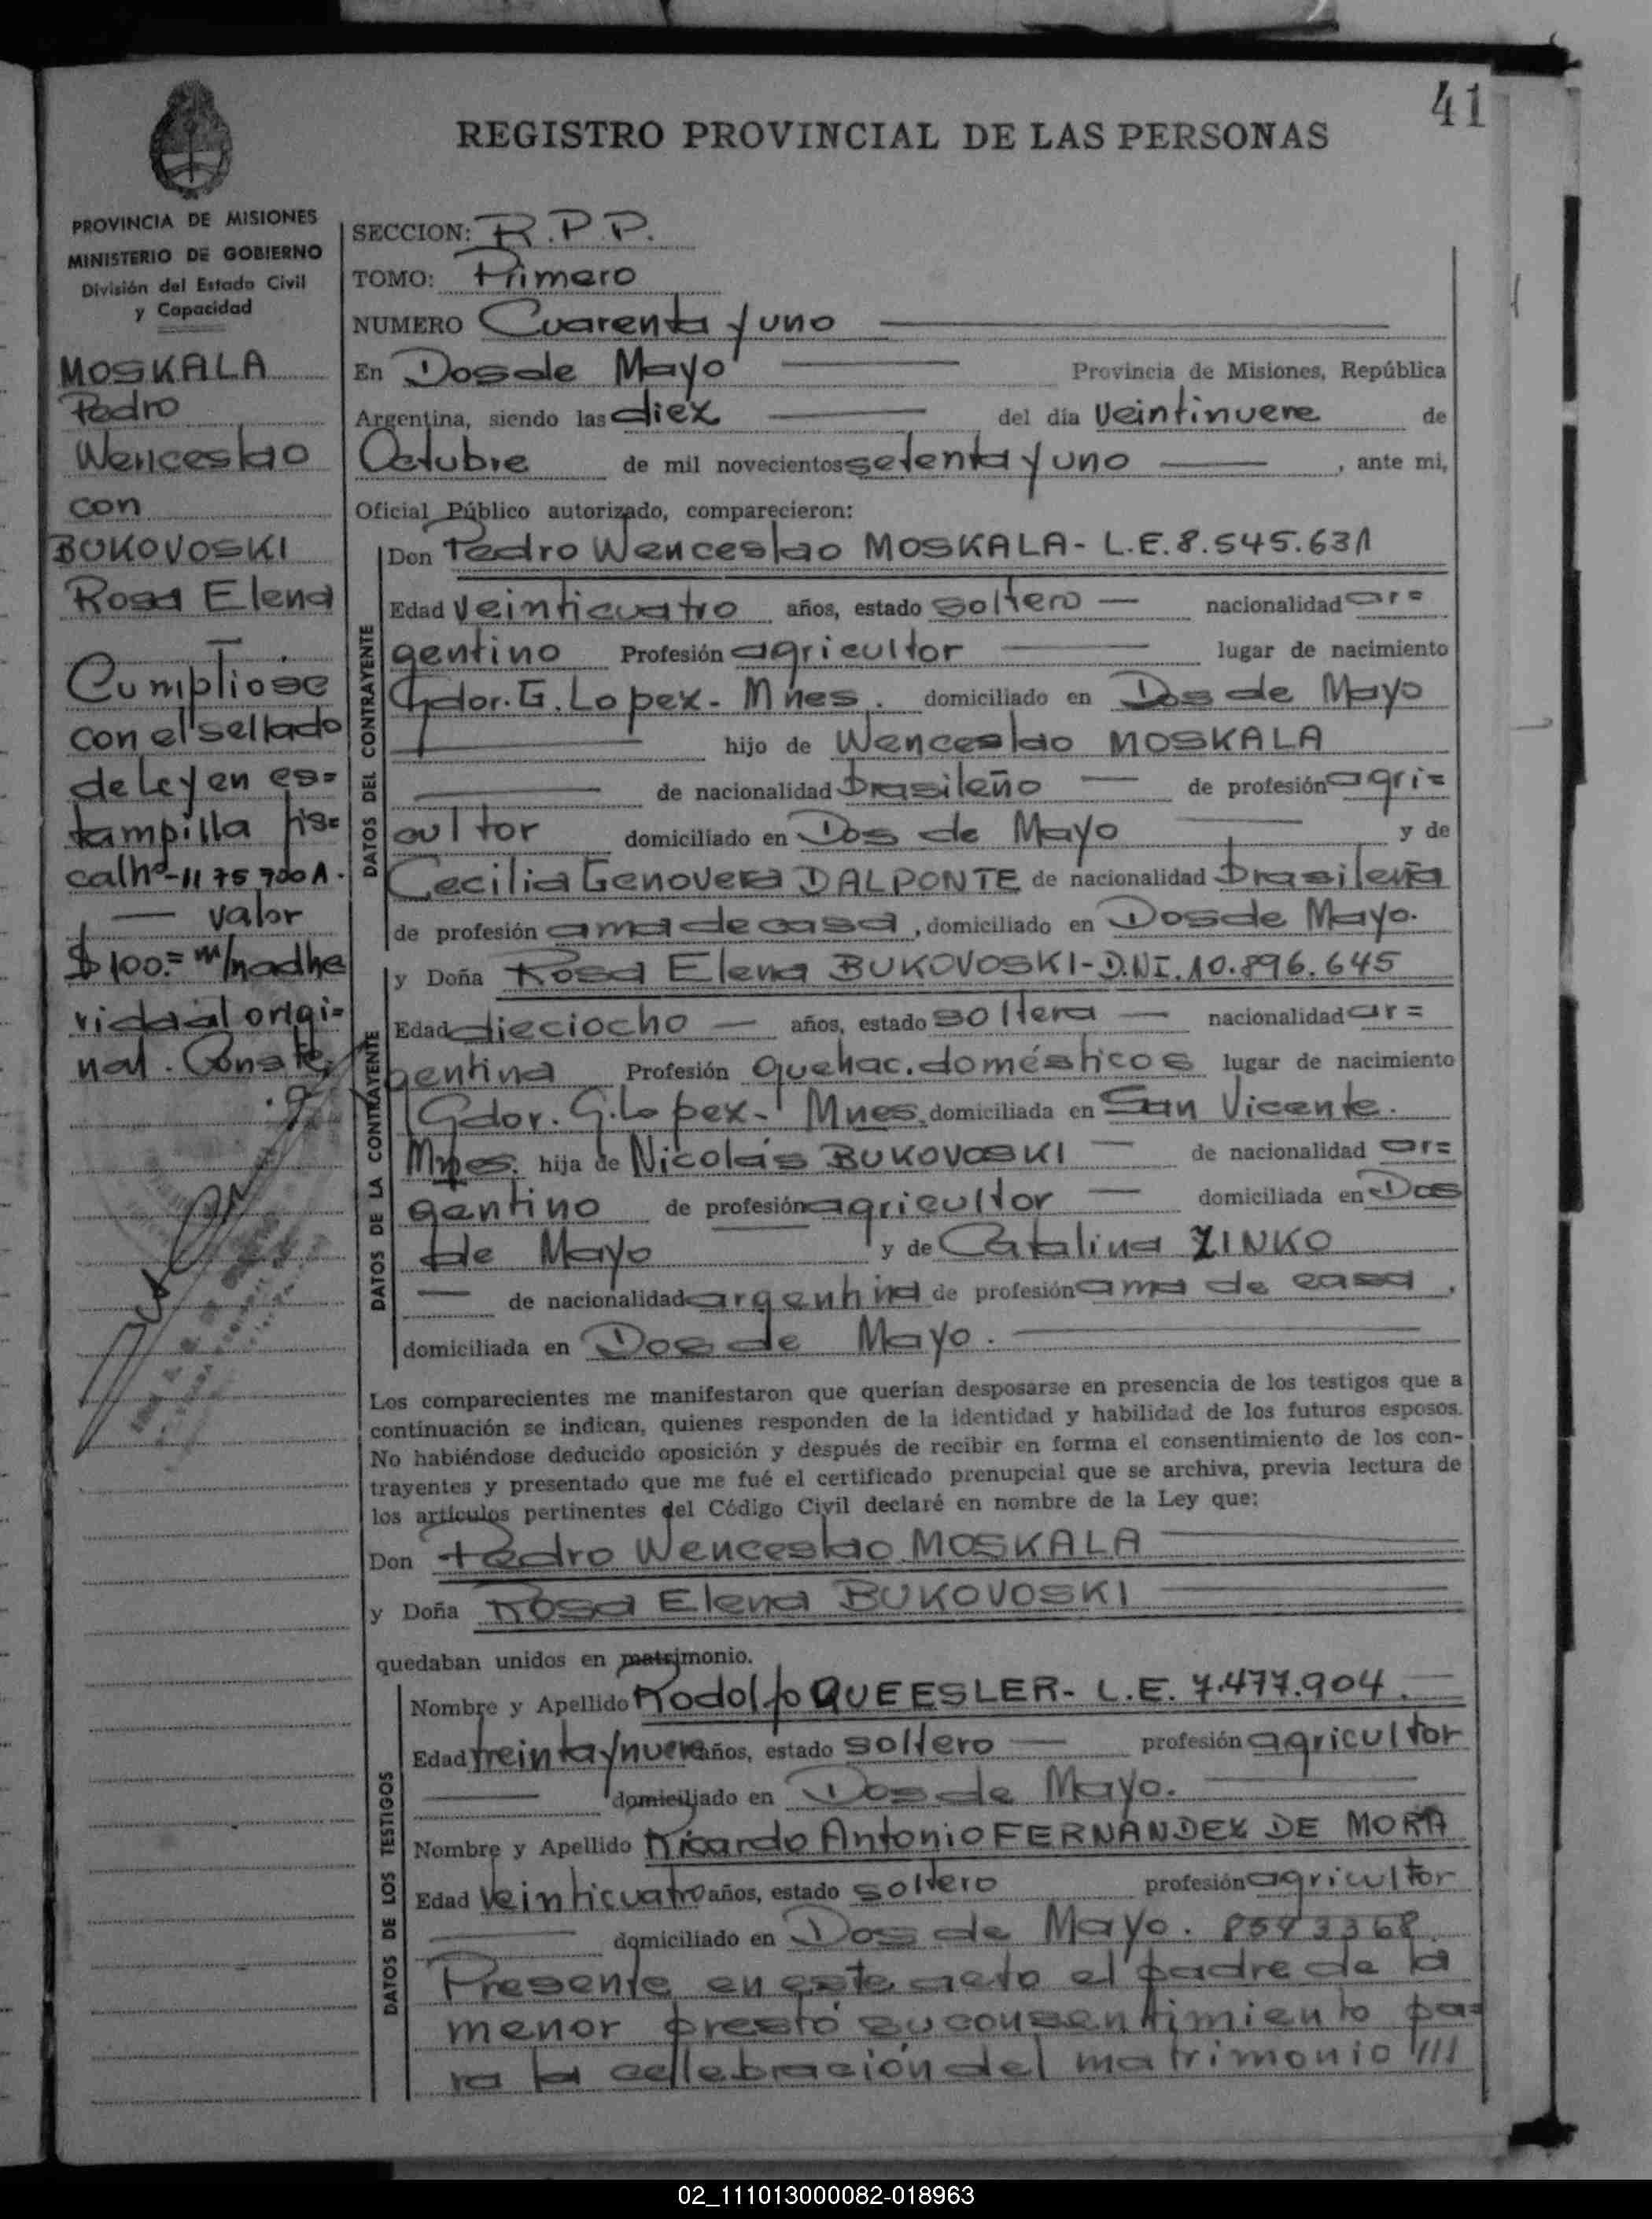 41
REGISTRO PROVINCIAL DE LAS PERSONAS
PROVINCIA DE MISIONES
MINISTERIO DE GOBIERNO
División del Estado Civil
y Capacidad
MOSKALA
Pedro
Wenceslao
con
BUKOVOSKI
Rosa Elena
Cumpliose
con el sellado
de Ley en es=
tampilla fis=
cal nº-1175700A.
— valor
$100.= m/n adhe
rida al origi=
nal. Conste.
SECCION: R.P.P.
TOMO: Primero
NUMERO Cuarenta y uno
En Dos de Mayo Provincia de Misiones, República
Argentina, siendo las diez del día veintinueve de
Octubre de mil novecientos setenta y uno , ante mi,
Oficial Público autorizado, comparecieron:
DATOS DEL CONTRAYENTE
Don Pedro Wenceslao MOSKALA- L.E.8.545.631
Edad veinticuatro años, estado soltero — nacionalidad ar=
gentino Profesión agricultor lugar de nacimiento
Gdor. G. Lopez- Mnes. domiciliado en Dos de Mayo
hijo de Wenceslao MOSKALA
de nacionalidad brasileño — de profesión agri=
cultor domiciliado en Dos de Mayo y de
Cecilia Genoveva DALPONTE de nacionalidad brasileña
de profesión ama de casa, domiciliado en Dos de Mayo.
DATOS DE LA CONTRAYENTE
y Doña Rosa Elena BUKOVOSKI-D.NI.10.896.645
Edad dieciocho — años, estado soltera — nacionalidad ar=
gentina Profesión quehac. domésticos lugar de nacimiento
Gdor. G. Lopez- Mnes. domiciliada en San Vicente.
Mnes. hija de Nicolás BUKOVOSKI — de nacionalidad ar=
gentino de profesión agricultor — domiciliada en Dos
de Mayo y de Catalina ZINKO
— de nacionalidad argentina de profesión ama de casa,
domiciliada en Dos de Mayo.
Los comparecientes me manifestaron que querían desposarse en presencia de los testigos que a
continuación se indican, quienes responden de la identidad y habilidad de los futuros esposos.
No habiéndose deducido oposición y después de recibir en forma el consentimiento de los con-
trayentes y presentado que me fué el certificado prenupcial que se archiva, previa lectura de
los artículos pertinentes del Código Civil declaré en nombre de la Ley que:
Don Pedro Wenceslao MOSKALA
y Doña Rosa Elena BUKOVOSKI
quedaban unidos en matrimonio.
DATOS DE LOS TESTIGOS
Nombre y Apellido Rodolfo QUEESLER- L.E. 7.477.904.
Edad treinta y nueve años, estado soltero — profesión agricultor
domiciliado en Dos de Mayo.
Nombre y Apellido Ricardo Antonio FERNANDEZ DE MORA
Edad veinticuatro años, estado soltero profesión agricultor
domiciliado en Dos de Mayo. 8593368
Presente en este acto el padre de la
menor prestó su consentimiento pa=
ra la cellebración del matrimonio ///
02_111013000082-018963